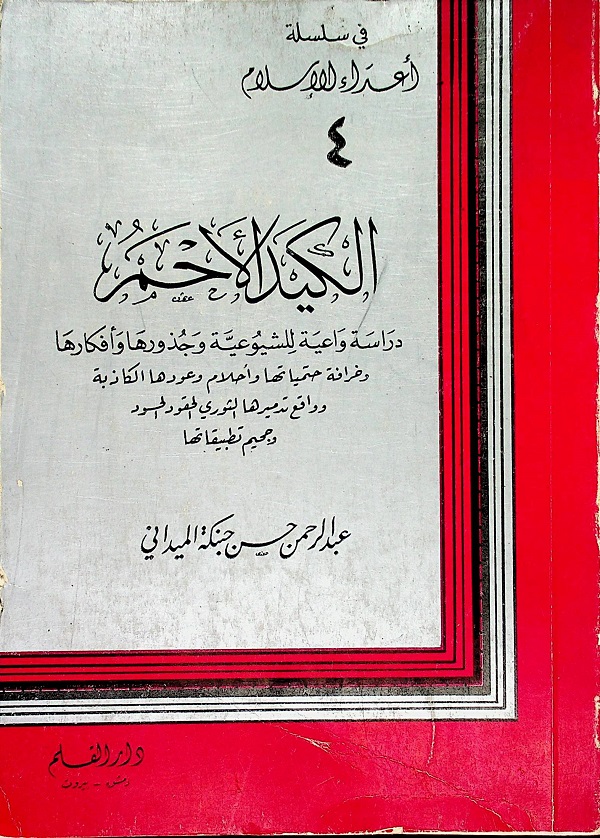 في سلسلة
أعداء الإسلام
٤
الكيد الأحمر
دراسة واعية للشيوعية وجذورها وأفكارها
وخرافة حتمياتها وأحلام وعودها الكاذبة
وواقع تدميرها الثوري الحقود الحسود
وجحيم تطبيقاتها
عبد الرحمن حسن حبنكة الميداني
دار القلم
دمشق - بيروت